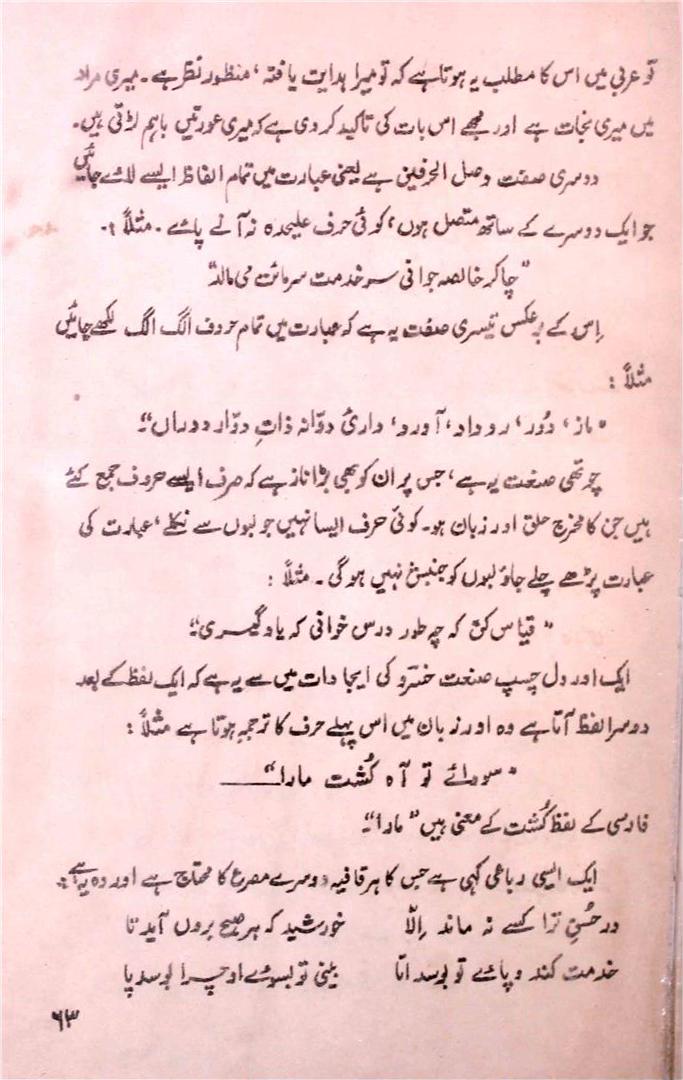 تو عربی میں اس کا مطلب یہ ہوتا ہے کہ تو میرا ہدایت یافتہ، منظور نظر ہے۔ میری مراد
میں میری نجات ہے اور مجھے اس بات کی تاکید کر دی ہے کہ میری عورتیں باہم لڑتی ہیں۔
دوسری صفت وصل الحرفین ہے یعنی عبارت میں تمام الفاظ ایسے لائے جائیں
جو ایک دوسرے کے ساتھ متصل ہوں، کوئی حرف علیحدہ نہ آنے پائے۔ مثلاً :۔
"چاکر خالصہ جوانی سر خدمت می مالد"
اِس کے برعکس تیسری صفت یہ ہے کہ عبارت میں تمام حروف الگ الگ لکھے جائیں
مثلاً :
"ماز، دُور، روداد، آورو، داریٔ دوّانہ ذاتِ دوّار دوراں"۔
چوتھی صنعت یہ ہے، جس پر ان کو بھی بڑا ناز ہے کہ صرف ایسے حروف جمع کئے
ہیں جن کا مخرج حلق اور زبان ہو۔ کوئی حرف ایسا نہیں جو لبوں سے نکلے، عبارت کی
عبارت پڑھے چلے جاؤ لبوں کو جنبش نہیں ہوگی۔ مثلاً :
"قیاس کن کہ چہ طور درس خوانی کہ یاد گیری"۔
ایک اور دل چسپ صنعت خسرو کی ایجادات میں سے یہ ہے کہ ایک لفظ کے بعد
دوسرا لفظ آتا ہے وہ اور زبان میں اس پہلے حرف کا ترجمہ ہوتا ہے مثلاً :
"سودائے تو آہ کُشت مارا"
فارسی کے لفظ کُشت کے معنی ہیں "مارا"۔
ایک ایسی رباعی کہی ہے جس کا ہر قافیہ دوسرے مصرع کا محتاج ہے اور وہ یہ ہے :۔
در حُسنِ ترا کسے نہ ماند اِلّا خورشید کہ ہر صبح بروں آید تا
خدمت کند و پائے تو بوسد امّا بینی تو بسوئے او چرا بوسد پا
۶۳